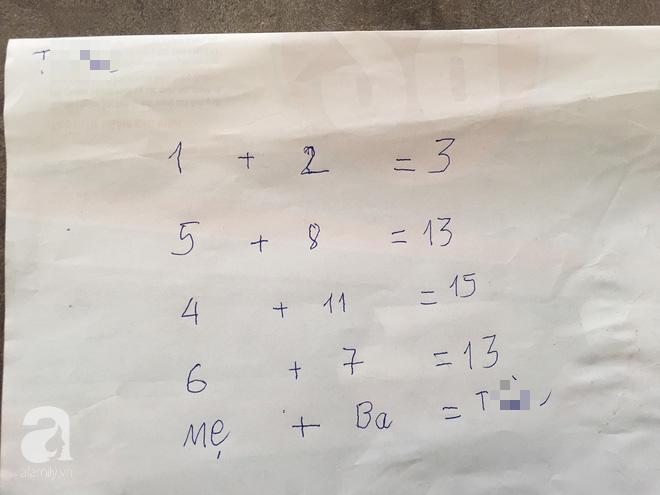 T
1 + 2 = 3
5 + 8 = 13
4 + 11 = 15
6 + 7 = 13
Mẹ + Ba = T
a
afamily.vn